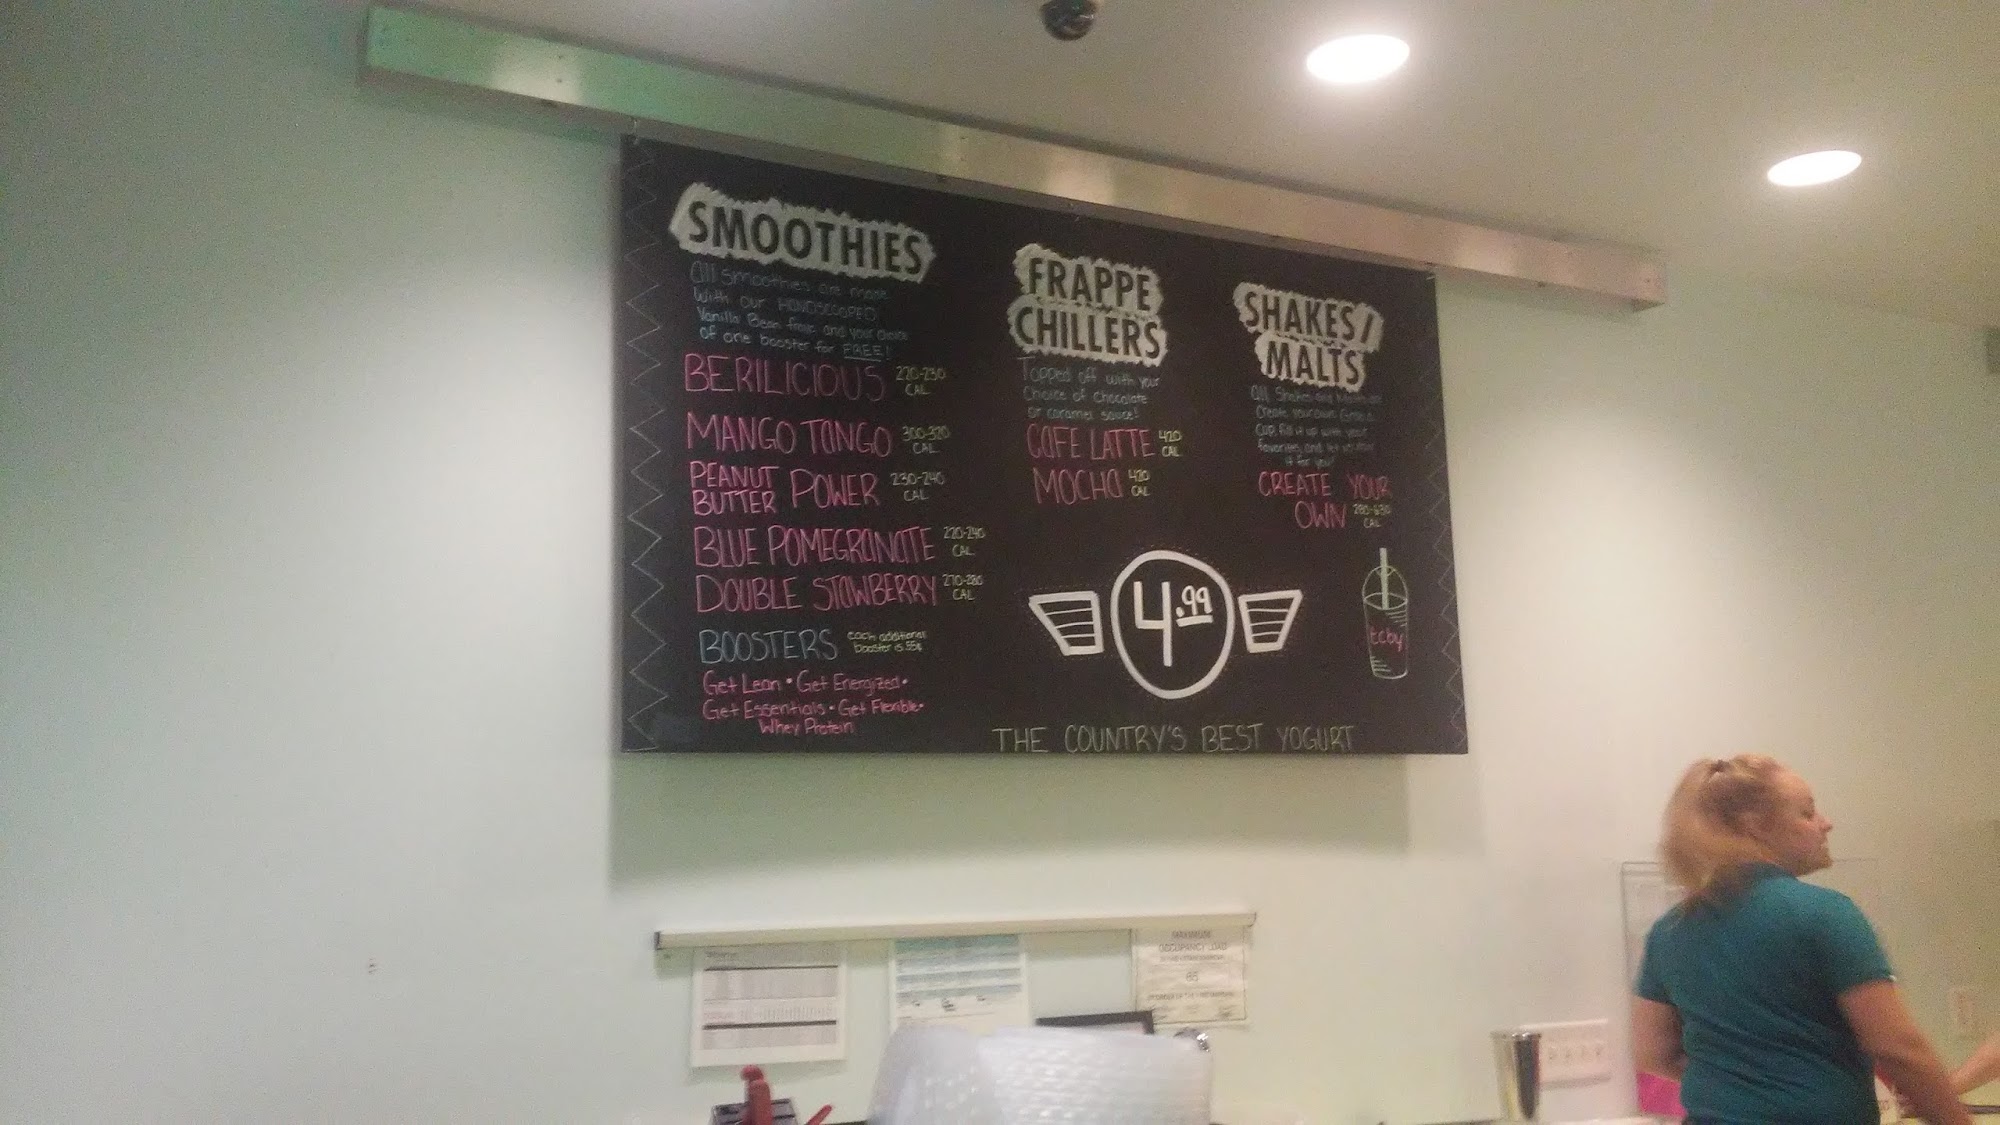 SMOOTHIES
All smoothies are made
with our HANDSCOOPED
Vanilla Bean froyo and your choice
of one booster for FREE!
BERILICIOUS 220-230 CAL
MANGO TANGO 300-320 CAL.
PEANUT BUTTER POWER 230-240 CAL
BLUE POMEGRANATE 220-240 CAL.
DOUBLE STOWBERRY 270-280 CAL.
BOOSTERS each additional booster is .55¢
Get Lean • Get Energized •
Get Essentials • Get Flexible •
Whey Protein
FRAPPE
CHILLERS
Topped off with your
Choice of Chocolate
or caramel sauce!
CAFE LATTE 420 CAL
MOCHA 420 CAL
SHAKES/
MALTS
All Shakes and Malts are
Create your own. Grab a
Cup, fill it up with your
favorites, and let us mix
it for you!
CREATE YOUR
OWN 280-630 CAL
4.99
tcby
THE COUNTRY'S BEST YOGURT
MAXIMUM
OCCUPANCY LOAD